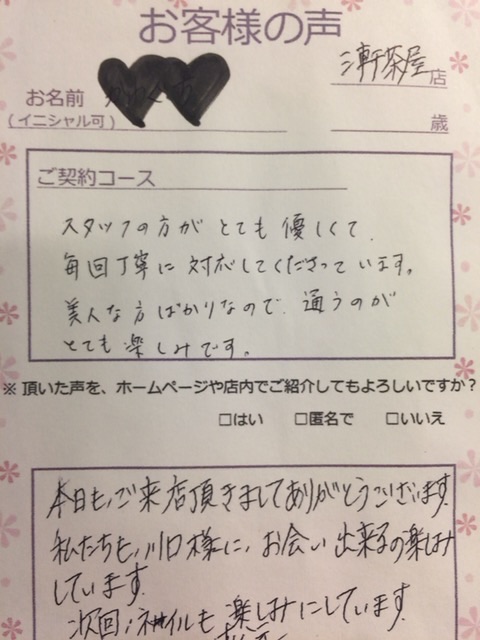 お客様の声
三軒茶屋店
お名前
（イニシャル可）
歳
ご契約コース
スタッフの方が とても 優しくて、
毎回丁寧に 対応してくださっています。
美人な方ばかりなので、通うのが
とても 楽しみです。
※頂いた声を、ホームページや店内でご紹介してもよろしいですか？
□はい □匿名で □いいえ
本日も、ご来店頂きましてありがとうございます。
私たちも、川口様に、お会い出来るの楽しみ
しています。
次回、 も楽しみにしています。